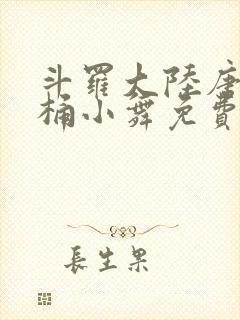 斗羅大陸唐
桶小舞免費
長生果